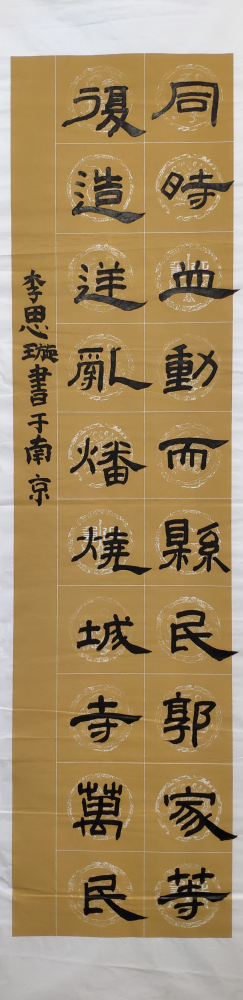 同時並動而縣民郭家等
復造逆亂燔燒城寺萬民
李思璇書于南京